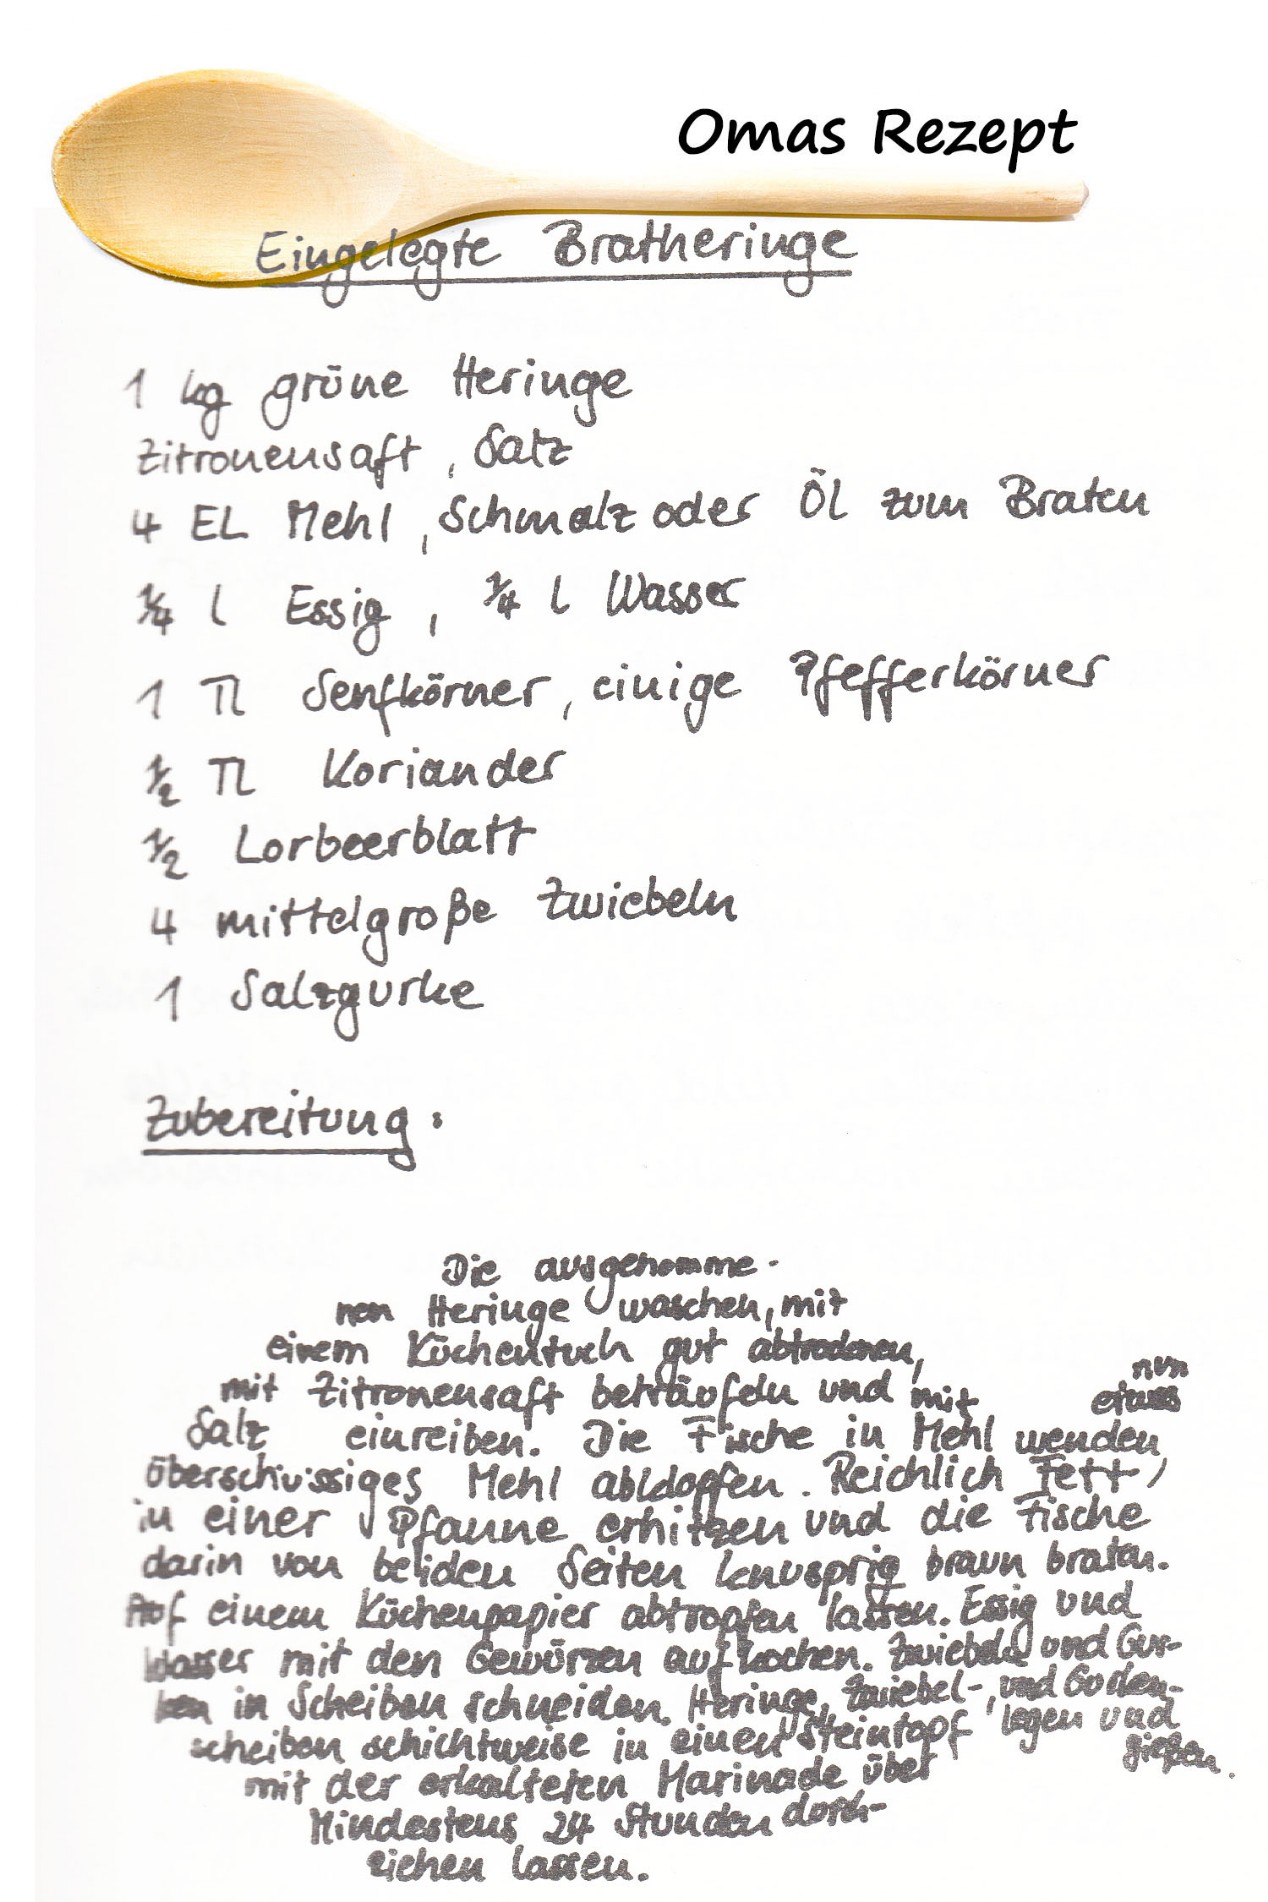 Omas Rezept
Eingelegte Bratheringe
1 kg grüne Heringe
Zitronensaft, Salz
4 EL Mehl, Schmalz oder Öl zum Braten
1/4 l Essig, 1/4 l Wasser
1 TL Senfkörner, einige Pfefferkörner
1/2 TL Koriander
1/2 Lorbeerblatt
4 mittelgroße Zwiebeln
1 Salzgurke
Zubereitung:
Die ausgenomme-
nen Heringe waschen, mit
einem Küchentuch gut abtrocknen,
mit Zitronensaft beträufeln und mit
nun
Salz einreiben. Die Fische in Mehl wenden,
überschüssiges Mehl abklopfen. Reichlich Fett
in einer Pfanne erhitzen und die Fische
darin von beiden Seiten knusprig braun braten.
Auf einem Küchenpapier abtropfen lassen. Essig und
Wasser mit den Gewürzen aufkochen. Zwiebeln und Gur-
ken in Scheiben schneiden. Heringe, Zwiebel-, und Gurken-
scheiben schichtweise in einen Steintopf legen und
mit der erkalteten Marinade über gießen.
Mindestens 24 Stunden durch-
ziehen lassen.